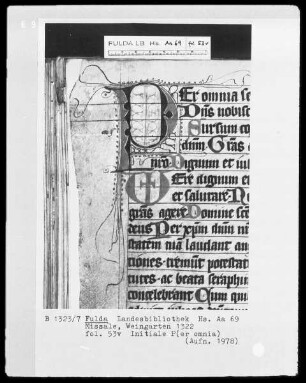 FULDA LB Hs. Aa 69 fc 53v
Per omnia se
Dns uobisc
Sursum co
dnm Gras
nro Dignum et iu
Uere dignum e
et salutare N
gras agere Domine sce
deus Per xpm dnm n
statem tuā laudant an
tiones tremunt potestat
tutes ac beata seraph
concelebrant Cum qui
B 1323/7 Fulda Landesbibliothek Hs. Aa 69
Missale, Weingarten 1322
fol. 53v Initiale P(er omnia)
(Aufn. 1978)